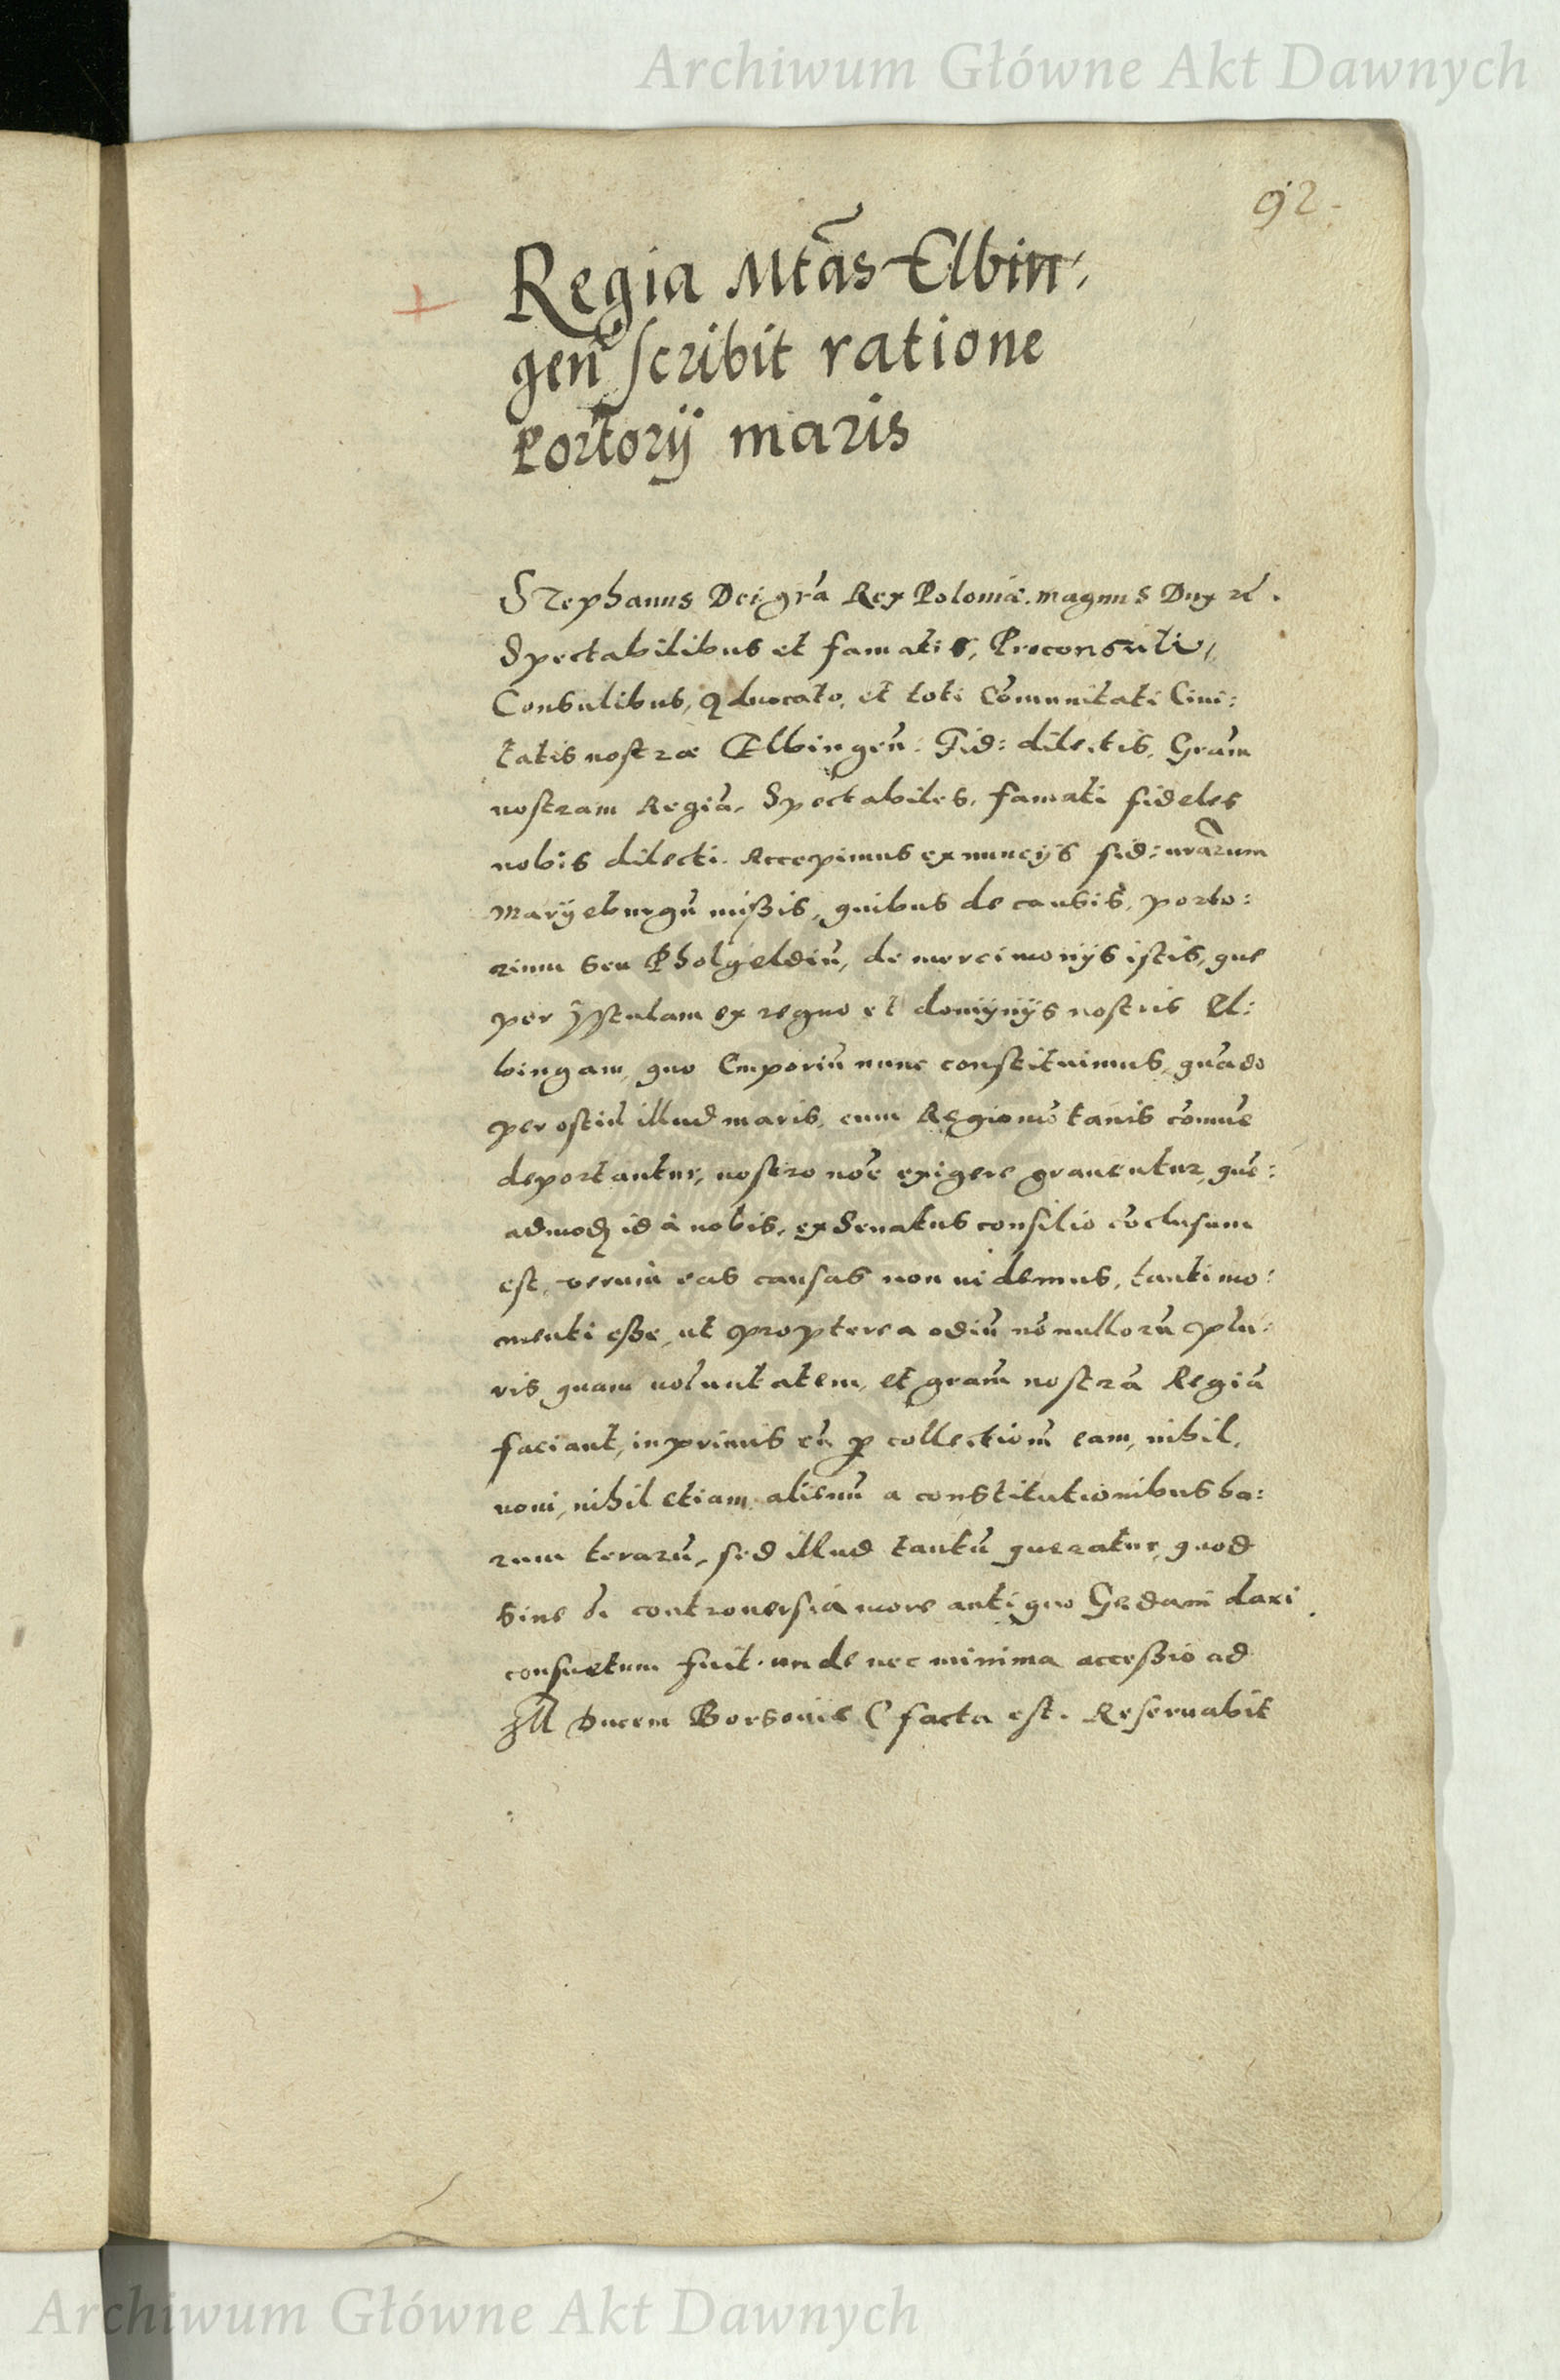 Archiwum Główne Akt Dawnych
92.
Regia Mtãs Elbin:
geñ scribit ratione
Portorij maris
Stephanus Dei grã Rex Poloniæ. magnus Dux rc̃.
Spectabilibus et famatis, Proconsuli,
Consulibus, Aduocato, et toti Cõmunitati Ciui:
tatis nostræ Elbingeñ: Fid: dilectis, Grãm
nostram Regiã. Spectabiles, famati fideles
nobis dilecti. Accepimus ex nuncijs fid: vrãrum
Marijeburgũ mißis, quibus de causis, porto:
rium seu Pholgeldiũ, de mercimonijs istis, que
per ystulam ex regno et domijnijs nostris El:
bingam, quo Emporiũ nunc constituimus, quãdo
per ostiũ illud maris, cum Regiomõtanis cõmue
deportantur, nostro nõe exigere grauentur, quẽ:
admodũ id à nobis, ex Senatus consilio cõclusum
est, verum eas causas non uidemus, tanti mo:
menti eße, ut propterea odiũ nõnullorũ plu:
ris quam uoluntatem, et grãm nostrã Regiã
faciant, inprimis cũ p collectionẽ eam, nihil
noui, nihil etiam alienũ a constitutionibus ha:
rum terarũ, sed illud tantũ queratur, quod
sine controuersia more antiquo Gedani dari
consuetum fuit. unde nec minima acceßio ad
Ill Ducem Borsouie facta est. Reseruabit
Archiwum Główne Akt Dawnych